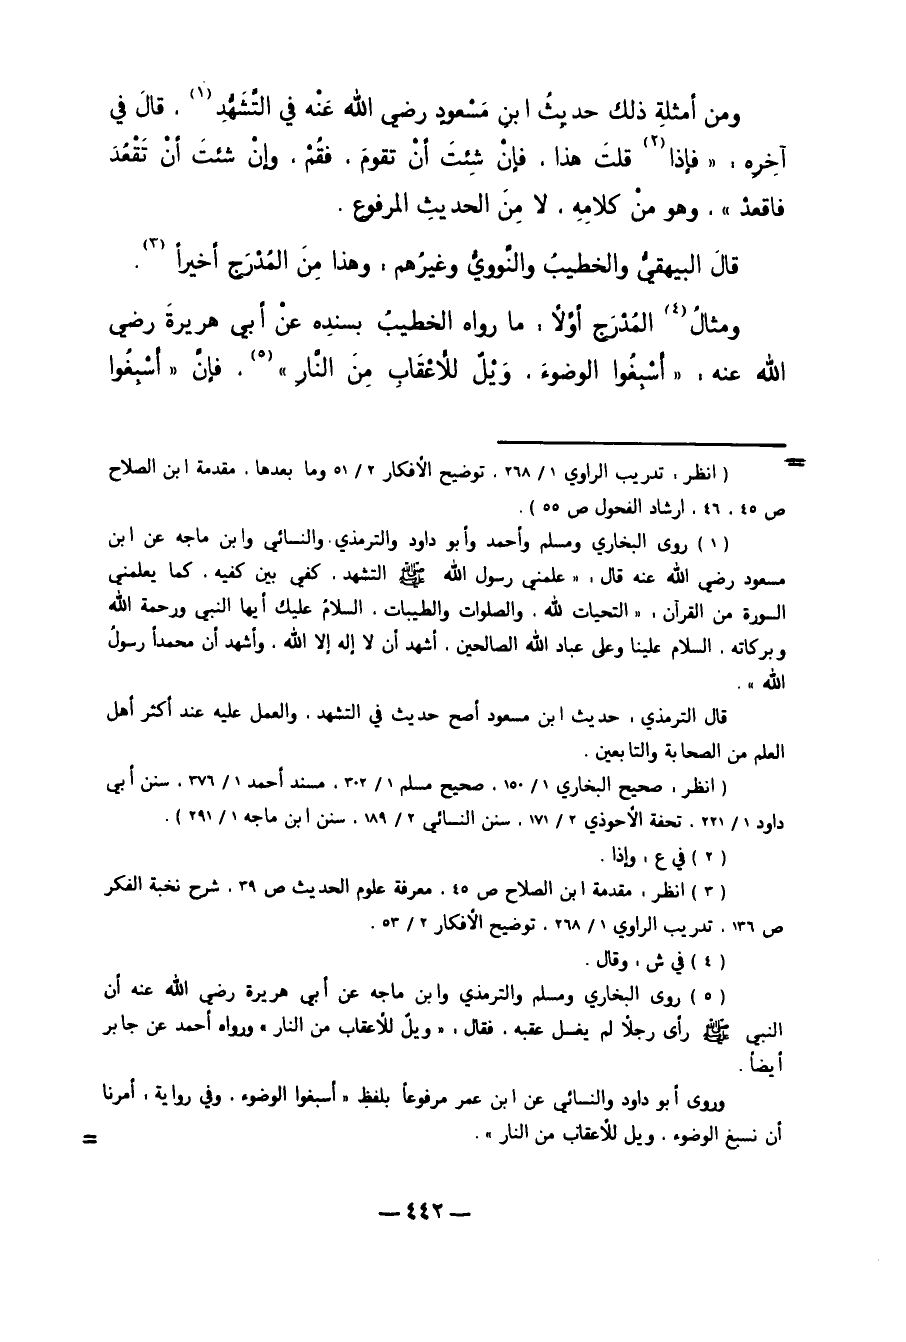 ومن أمثلةِ ذلك حديثُ ابنِ مَسْعودٍ رضي الله عَنْه في التَّشَهُّدِ (١) ، قالَ في
آخِرِه : « فإذا (٢) قلتَ هذا ، فإنْ شِئتَ أنْ تقومَ ، فقُمْ ، وإنْ شئتَ أنْ تَقْعُدَ
فاقعدْ » ، وهو منْ كلامِهِ ، لا مِنَ الحديثِ المرفوعِ .
قالَ البيهقيُّ والخطيبُ والنَّوويُّ وغيرُهم : وهذا مِنَ المُدْرَجِ أخيراً (٣) .
ومثالُ (٤) المُدْرَجِ أوَّلاً : ما رواه الخطيبُ بسندِه عنْ أبي هريرةَ رضي
الله عنه : « أَسْبِغُوا الوضوءَ ، وَيْلٌ للأعْقَابِ مِنَ النَّارِ » (٥) ، فإنَّ « أَسْبِغُوا
= ( انظر : تدريب الراوي ١ / ٢٦٨ ، توضيح الأفكار ٢ / ٥١ وما بعدها ، مقدمة ابن الصلاح
ص ٤٥ ، ٤٦ ، ارشاد الفحول ص ٥٥ ) .
( ١ ) روى البخاري ومسلم وأحمد وأبو داود والترمذي والنسائي وابن ماجه عن ابن
مسعود رضي الله عنه قال : « علمني رسول الله ﷺ التشهد ، كفي بين كفيه ، كما يعلمني
السورة من القرآن : « التحيات لله ، والصلوات والطيبات ، السلامُ عليك أيها النبي ورحمة الله
وبركاته ، السلام علينا وعلى عباد الله الصالحين ، أشهد أن لا إله إلا الله ، وأشهد أن محمداً رسولُ
الله » .
قال الترمذي : حديث ابن مسعود أصح حديث في التشهد ، والعمل عليه عند أكثر أهل
العلم من الصحابة والتابعين .
( انظر : صحيح البخاري ١ / ١٥٠ ، صحيح مسلم ١ / ٣٠٢ ، مسند أحمد ١ / ٣٧٦ ، سنن أبي
داود ١ / ٢٢١ ، تحفة الأحوذي ٢ / ١٧١ ، سنن النسائي ٢ / ١٨٩ ، سنن ابن ماجه ١ / ٢٩١ ) .
( ٢ ) في ع : وإذا .
( ٣ ) انظر : مقدمة ابن الصلاح ص ٤٥ ، معرفة علوم الحديث ص ٣٩ ، شرح نخبة الفكر
ص ١٣٦ ، تدريب الراوي ١ / ٢٦٨ ، توضيح الأفكار ٢ / ٥٣ .
( ٤ ) في ش : وقال .
( ٥ ) روى البخاري ومسلم والترمذي وابن ماجه عن أبي هريرة رضي الله عنه أن
النبي ﷺ رأى رجلاً لم يغسل عقبه ، فقال : « ويلٌ للأعقاب من النار » ورواه أحمد عن جابر
أيضاً .
وروى أبو داود والنسائي عن ابن عمر مرفوعاً بلفظِ « أسبغوا الوضوء ، وفي رواية : أمرنا
أن نسبغ الوضوء ، ويل للأعقاب من النار » . =
— ٤٤٢ —